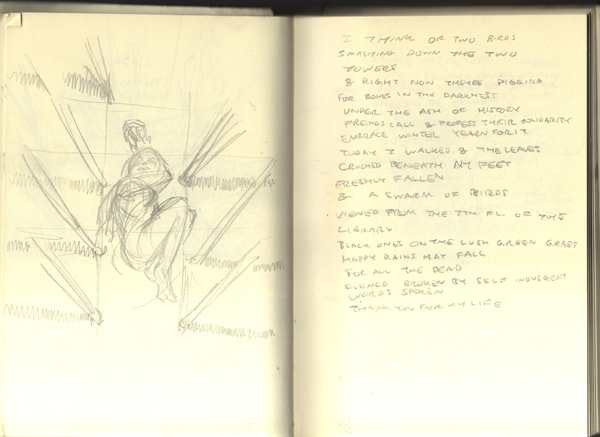 I THINK OF TWO BIRDS
SMASHING DOWN THE TWO
TOWERS
& RIGHT NOW THEYRE DIGGING
FOR BONES IN THE DARKNESS
UNDER THE ASH OF HISTORY
FREINDS CALL & PROFESS THEIR SOLIDARITY
EMBRACE WINTER YEARN FOR IT
TODAY I WALKED & THE LEAVES
CRUSHED BENEATH MY FEET
FRESHLY FALLEN
& A SWARM OF BIRDS
VIEWED FROM THE 7TH FL. OF THE
LIBRARY
BLACK ONES ON THE LUSH GREEN GRASS
HAPPY RAINS MAY FALL
FOR ALL THE DEAD
SILENCE BROKEN BY SELF INDULGENT
WORDS SPOKEN
THANK YOU FOR MY LIFE